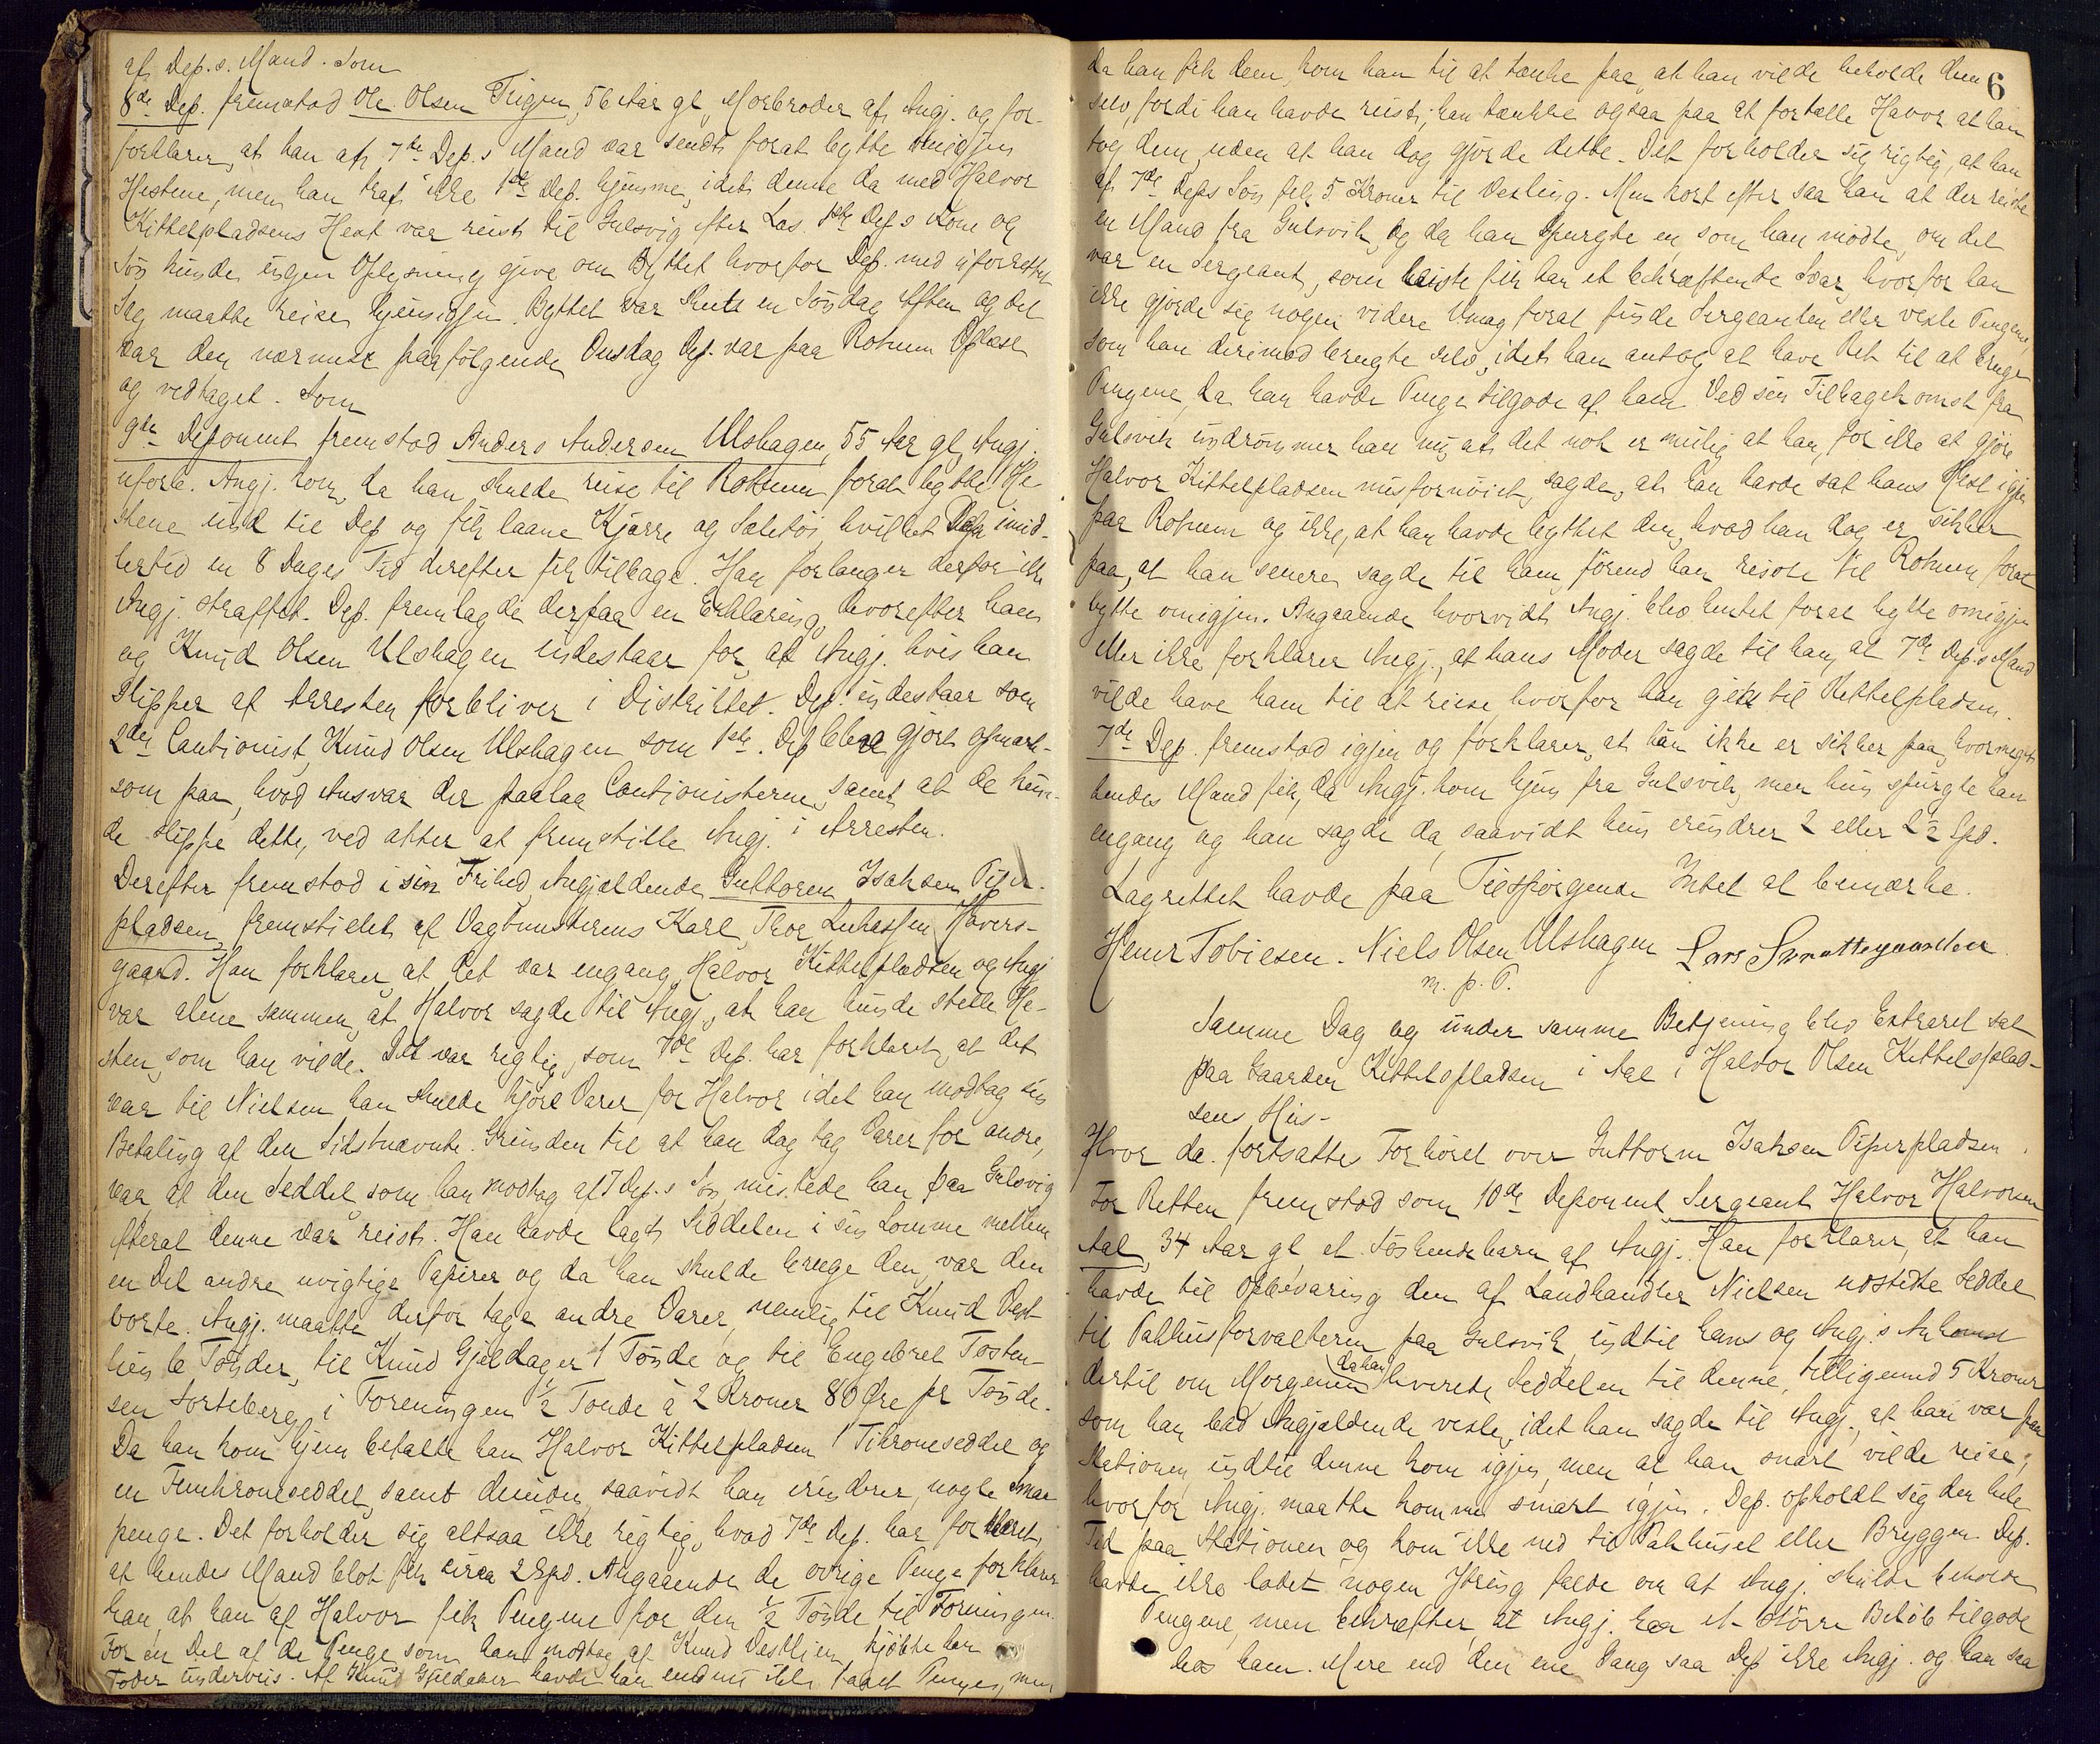 af Dep.s. Mand. Som
8de Dep. fremstod Ole Olsen Trigen, 56 Aar gl, Morbroder af Angj. og for-
forklarer, at han af 7de Dep.s Mand var sendt forat bytte omigjen
Hestene, men han traf ikke 1ste Dep. hjemme, idet denne da med Halvor
Kittelpladsens Hest var reist til Gulsvig efter Las. 1ste Dep.s Kone og
Søn kunde ingen Oplysning give om Byttet hvorfor Dep. med uforrettet
Sag maatte reise hjemigjen. Byttet var skeet en Søndag Aften og det
var den nærmest paafølgende Onsdag Dep. var paa Rotnem Oplæst
og vedtaget. Som
9de Deponent fremstod Anders Andersen Ulshagen, 55 Aar gl, Angj.
uforb. Angj. kom, da han skulde reise til Rotnem forat bytte He-
stene ind til Dep og fik laane Kjærre og Seletøi hvilket Dep imid-
lertid en 8 Dages Tid derefter fik tilbage. Han forlanger derfor ikke
Angj. straffet. Dep. fremlagde derpaa en Erklæring, hvorefter han
og Knud Olsen Ulshagen indestaar for, at Angj. hvis han
slipper af Arresten forbliver i Distriktet. Dep. indestaar som
2den Cautionist, Knud Olsen Ulshagen som 1ste. Dep blev gjort opmærk-
som paa, hvad Ansvar der paalaa Cautionisterne, samt at de kun-
de slippe dette, ved atter at fremstille Angj. i Arresten.
Derefter fremstod i sin Frihed Angjældende Guttorm Isaksen Piper-
pladsen, fremstillet af Vagtmesterens Karl Thor Lukassen Hovers-
gaard. Han forklarer, at det var engang Halvor Kittelpladsen og Angj
var alene sammen, at Halvor sagde til Angj., at han kunde stelle He-
sten, som han vilde. Det var rigtig, som 7de Dep. har forklaret, at det
var til Nielsen han skulde kjøre Varer for Halvor idet han modtog sin
Betaling af den Sidstnævnte. Grunden til at han dog tog Varer for andre,
var at den Seddel som han modtog af 7 Dep.s Søn mistede han paa Gulsvig
efterat denne var reist. Han havde lagt Seddelen i sin Lomme mellem
en Del andre uvigtige Papirer og da han skulde bruge den, var den
borte. Angj. maatte derfor tage andre Varer, nemlig til Knud Vest-
lien 6 Tønder, til Knud Gjeldager 1 Tønde og til Engebret Tosten-
sen Sorteberg i Foreningen ½ Tønde à 2 Kroner 80 Øre pr Tønde.
Da han kom hjem betalte han Halvor Kittelpladsen 1 Tikroneseddel og
en Femkroneseddel, samt desuden, saavidt han erindrer, nogle Smaa
penge. Det forholder sig altsaa ikke rigtig, hvad 7de Dep. har forklaret,
at hendes Mand blot fik circa 2 Spd. Angaaende de øvrige Penge forklarer
han, at han af Halvor fik Pengene for den ½ Tønde til Foreningen.
For en Del af de Penge som han modtog af Knud Vestlien, kjøbte han
Foder underveis. Af Knud Gjeldager havde han endnu ikke faaet Penge, men
6
da han fik dem, kom han til at tænke paa, at han vilde beholde dem
selv, fordi han havde reist; han tænkte ogsaa paa at fortælle Havor at han
tog dem, uden at han dog gjorde dette. Det forholder sig rigtig, at han
af 7de Deps Søn fik 5 Kroner til Vexling. Men kort efter saa han at der reiste
en Mand fra Gulsvik, og da han spurgte en, som han mødte, om det
var en Sergeant, som reiste fik han et bekræftende Svar, hvorfor han
ikke gjorde sig nogen videre Umag forat finde Sergeanten eller vexle Pengene,
som han derimod brugte selv, idet han antog at have Ret til at bruge
Pengene, da han havde Penge tilgode af ham. Ved sin Tilbagekomst fra
Gulsvik indrømmer han nu, at det nok er mulig at han, for ikke at gjøre
Halvor Kittelpladsen misfornøiet, sagde, at han havde sat hans Hest igjen
paa Rotnem og ikke, at han havde byttet den, hvad han dog er sikker
paa, at han senere sagde til ham førend han reiste til Rotnem forat
bytte omigjen. Angaaende hvorvidt Angj. blev hentet forat bytte omigjen
eller ikke forklarer Angj., at hans Moder sagde til ham, at 7de Dep.s Mand
vilde have ham til at reise, hvorfor han gik til Kittelpladsen.
7de Dep. fremstod igjen og forklarer, at hun ikke er sikker paa, hvormeget
hendes Mand fik, da Angj. kom hjem fra Gulsvik, men hun spurgte ham
engang og han sagde da, saavidt hun erindrer 2 eller 2½ Spd.
Lagrettet havde paa Tilspørgende Intet at bemærke.
Henr Tobiesen. Niels Olsen Ulshagen Lars
m. p. P.
Samme Dag og under samme Betjening blev Extraret sat
paa Gaarden Kittelspladsen i Aal i Halvor Olsen Kittelsplad-
sens Hus-
Hvor da fortsattes Forhøret over Guttorm Isaksen Piperpladsen.
For Retten fremstod som 10de Deponent Sergeant Halvor Halvorsen
Aal, 34 Aar gl et Søskendebarn af Angj. Han forklarer, at han
havde til Opbevaring den af Landhandler Nielsen udstedte Seddel
til Pakhusforvalteren paa Gulsvik indtil hans og Angj.s Ankomst
dertil om Morgenen da han leverede Seddelen til denne, tilligemed 5 Kroner
som han bad Angjældende vexle, idet han sagde til Angj., at han var paa
Stationen indtil denne kom igjen, men at han snart vilde reise;
hvorfor Angj. maatte komme snart igjen. Dep. opholdt sig den hele
Tid paa Stationen og kom ikke ned til Pakhuset eller Bryggen. Dep.
havde ikke ladet nogen Ytring falde om at Angj. skulde beholde
Pengene, men bekræfter, at Angj. har et større Beløb tilgode
hos ham. Mere end den ene Gang saa Dep ikke Angj. og han saa